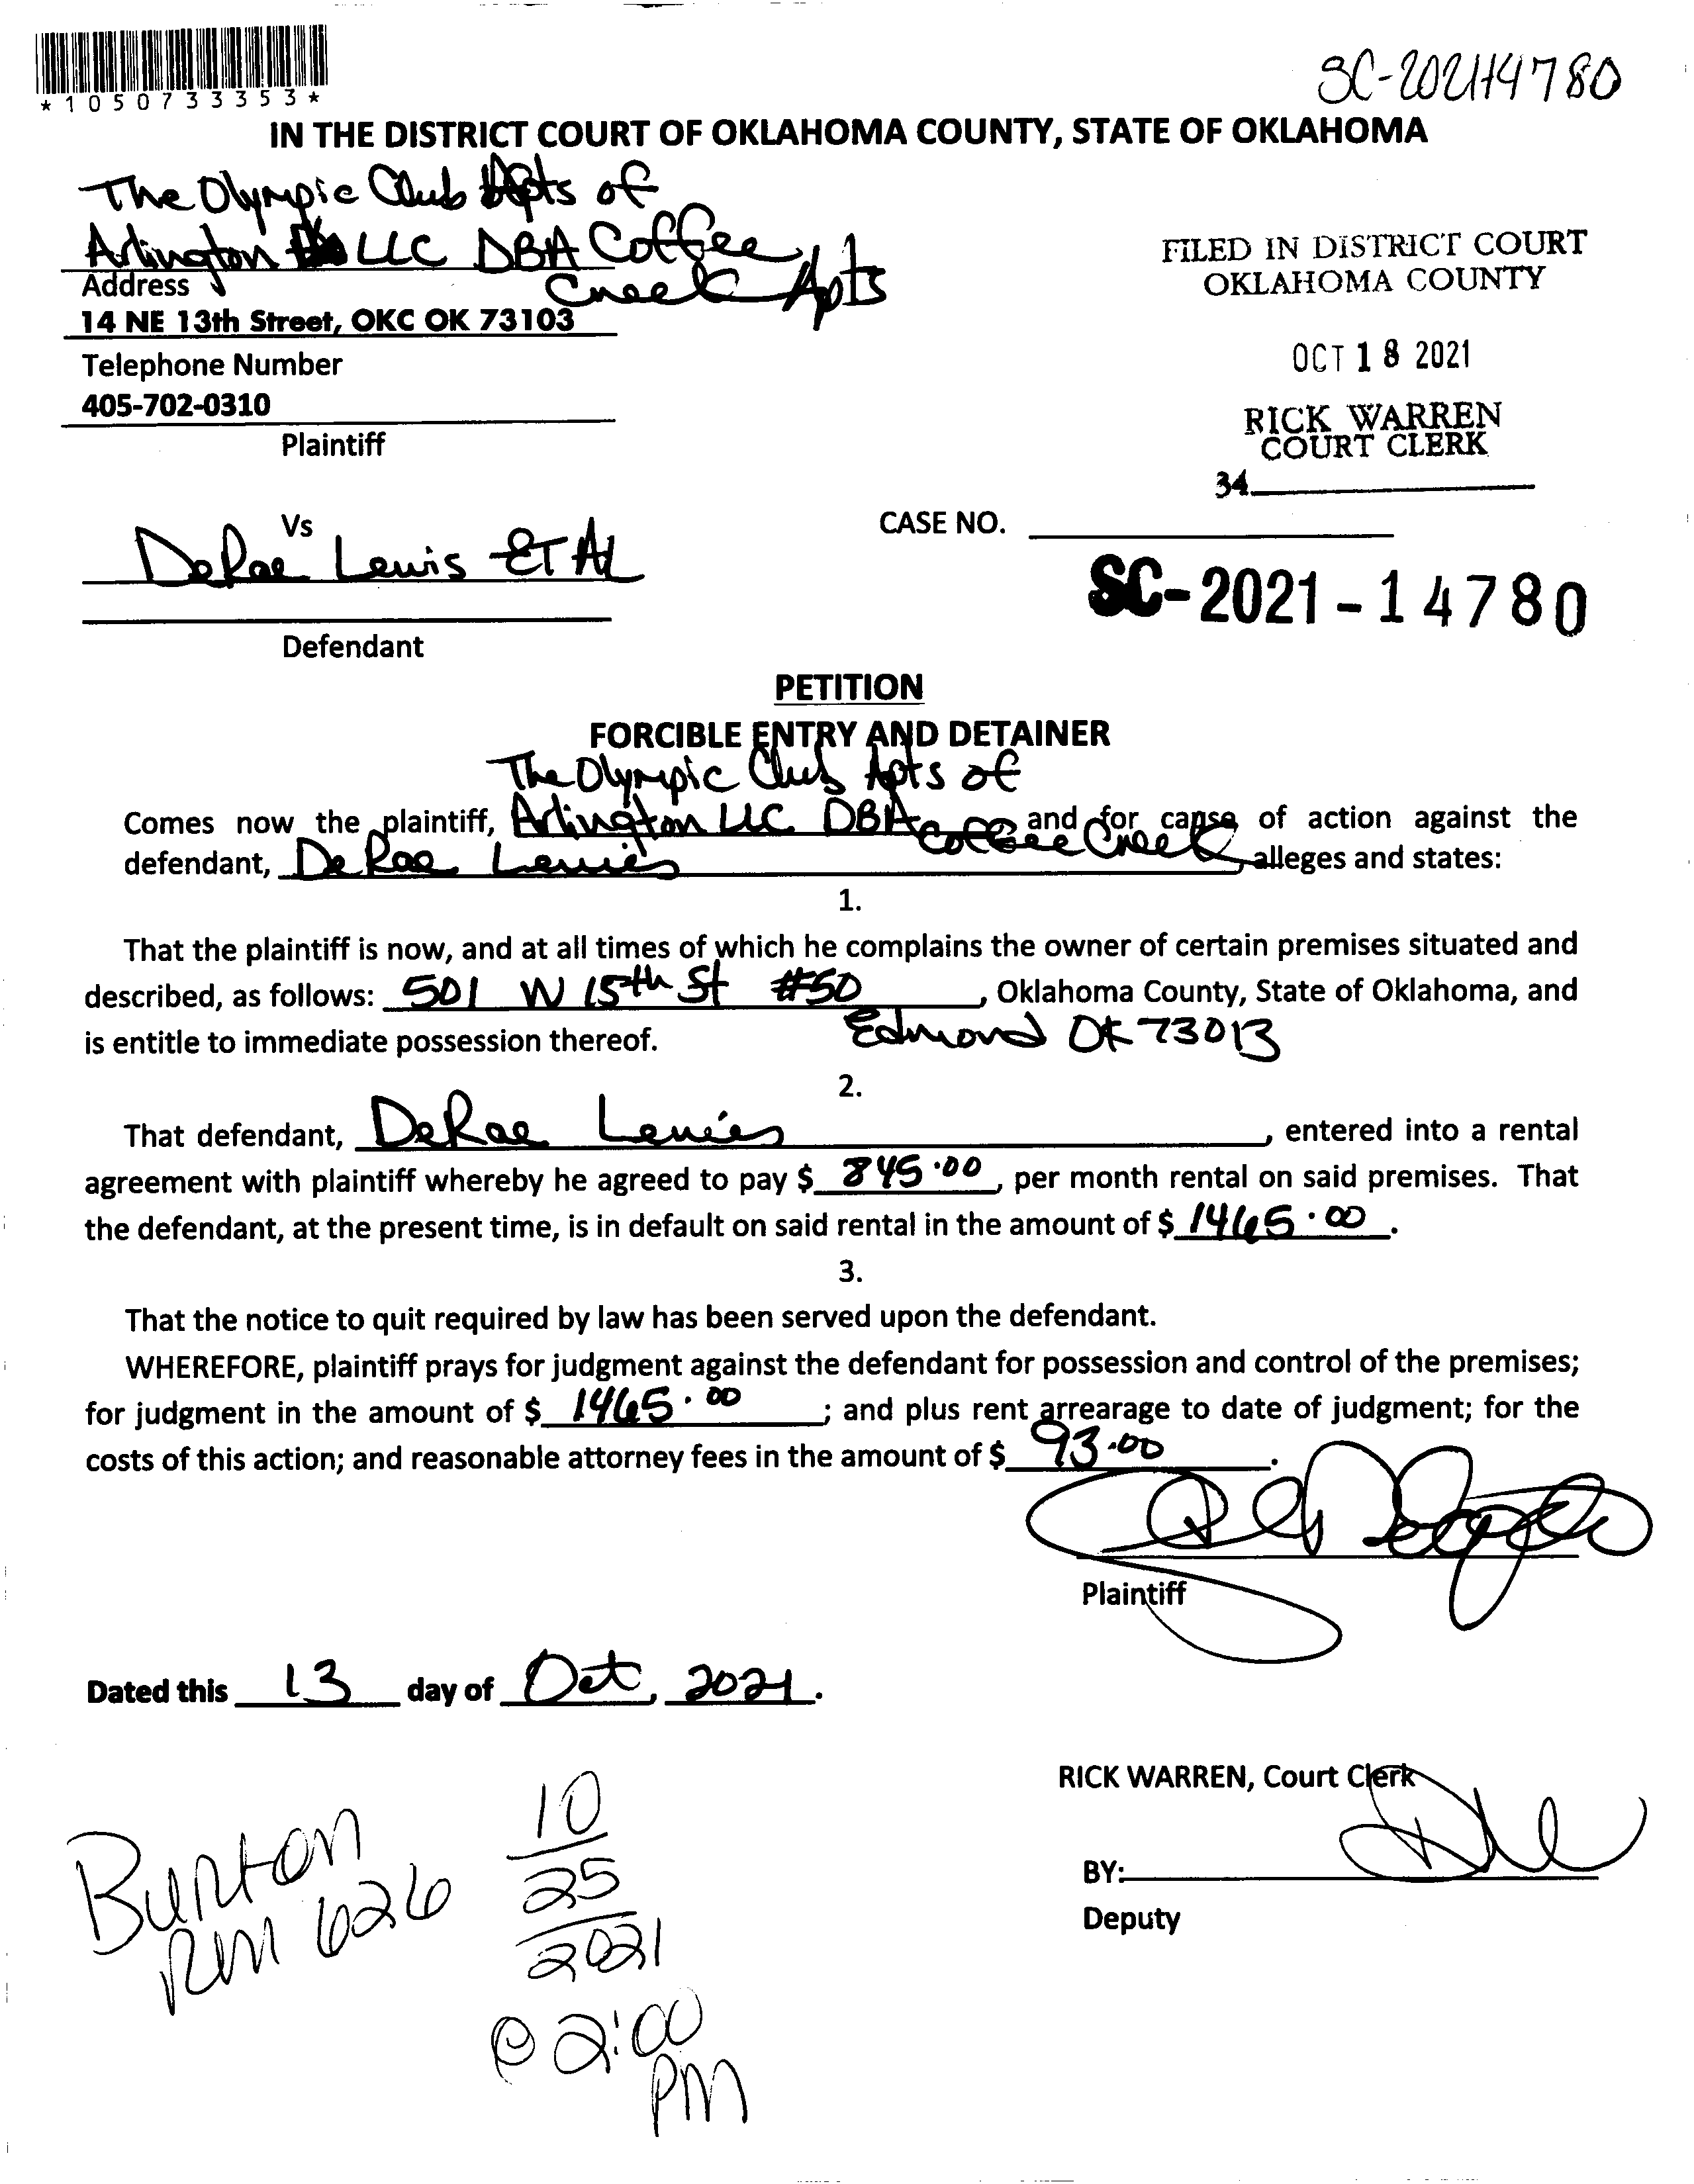 *1050733353*
SC-2021-14780
IN THE DISTRICT COURT OF OKLAHOMA COUNTY, STATE OF OKLAHOMA
The Olympic Club Apts of
Arlington LLC DBA Coffee
Creek Apts
Address
14 NE 13th Street, OKC OK 73103
Telephone Number
405-702-0310
Plaintiff
FILED IN DISTRICT COURT
OKLAHOMA COUNTY
OCT 18 2021
RICK WARREN
COURT CLERK
34
Vs
DeRae Lewis ET AL
Defendant
CASE NO.
SC-2021-14780
PETITION
FORCIBLE ENTRY AND DETAINER
The Olympic Club Apts of
Comes now the plaintiff, Arlington LLC DBA Coffee Creek and for cause of action against the
defendant, DeRae Lewis, alleges and states:
1.
That the plaintiff is now, and at all times of which he complains the owner of certain premises situated and
described, as follows: 501 W 15th St #50, Oklahoma County, State of Oklahoma, and
is entitle to immediate possession thereof. Edmond OK 73013
2.
That defendant, DeRae Lewis, entered into a rental
agreement with plaintiff whereby he agreed to pay $ 845.00, per month rental on said premises. That
the defendant, at the present time, is in default on said rental in the amount of $ 1465.00.
3.
That the notice to quit required by law has been served upon the defendant.
WHEREFORE, plaintiff prays for judgment against the defendant for possession and control of the premises;
for judgment in the amount of $ 1465.00; and plus rent arrearage to date of judgment; for the
costs of this action; and reasonable attorney fees in the amount of $ 93.00.
Plaintiff
Dated this 13 day of Oct, 2021.
RICK WARREN, Court Clerk
BY:
Deputy
Burton
RM 626
10
25
2021
@ 2:00
PM